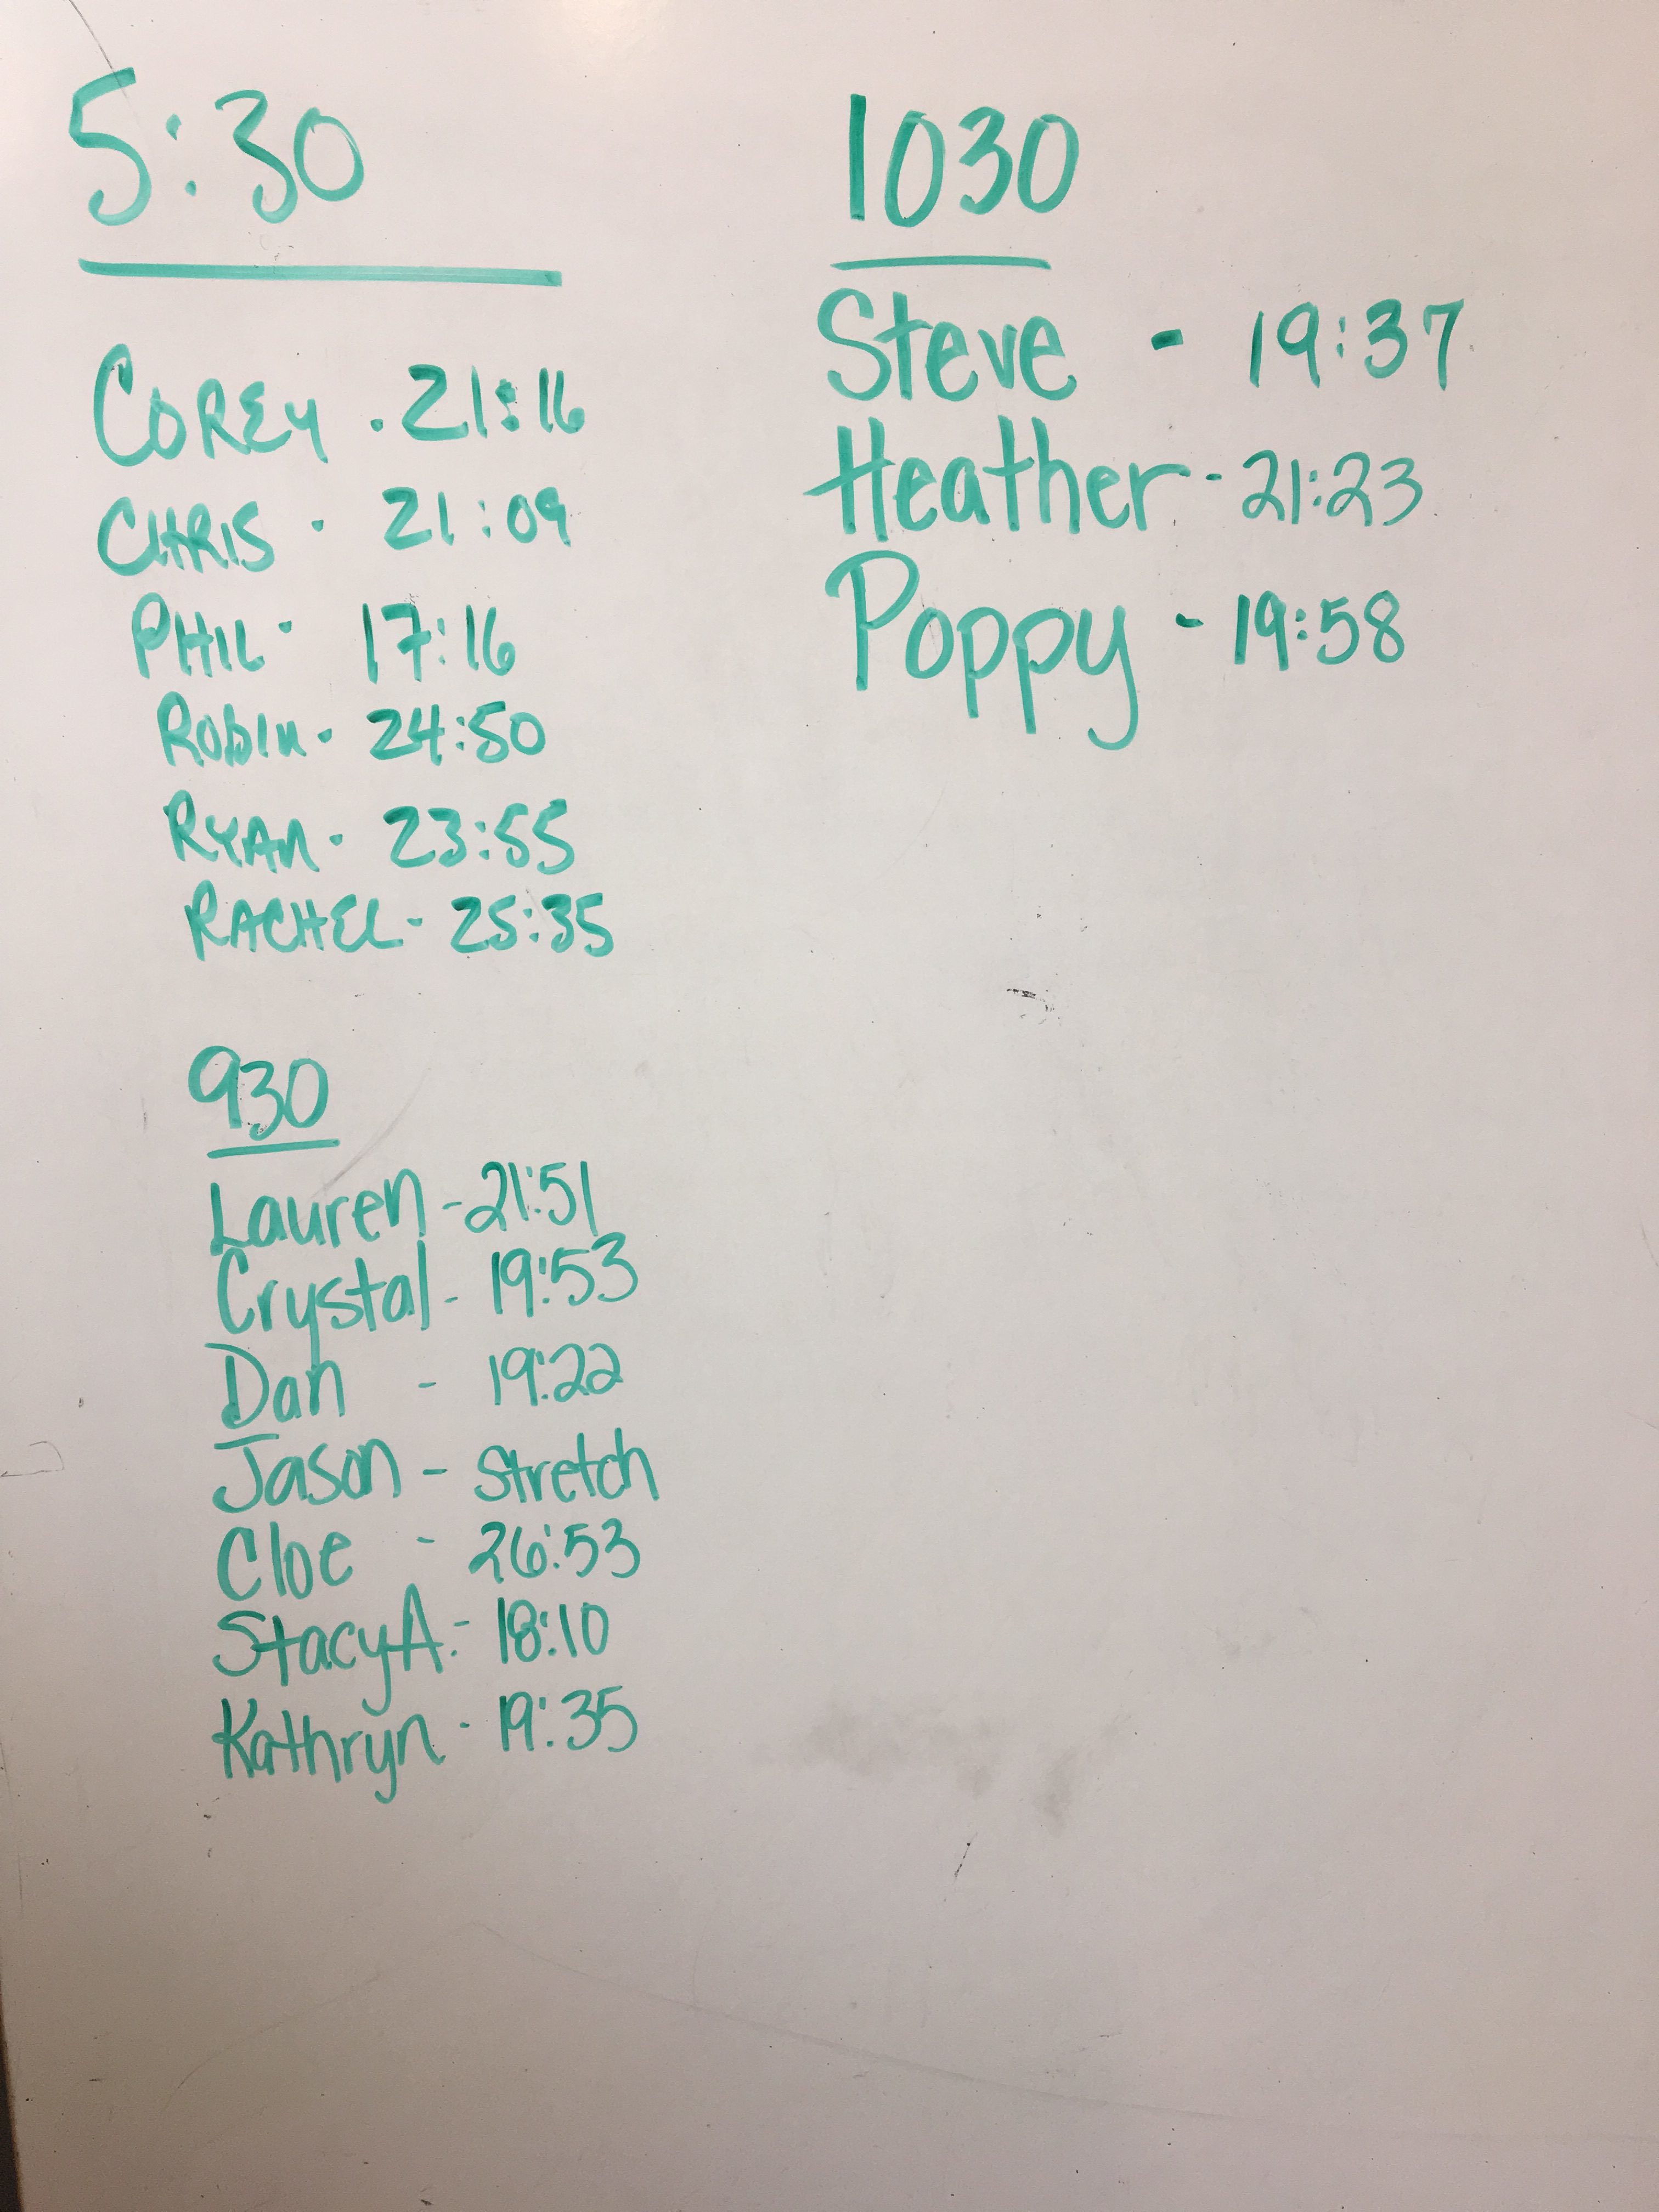 5:30
COREY . 21:16
CHRIS · 21:09
PHIL · 17:16
RobIn · 24:50
RYAN · 23:55
RACHEL - 25:35
930
Lauren - 21:51
Crystal - 19:53
Dan - 19:22
Jason - Stretch
Cloe - 26:53
Stacy A. - 18:10
Kathryn - 19:35
1030
Steve - 19:37
Heather - 21:23
Poppy - 19:58